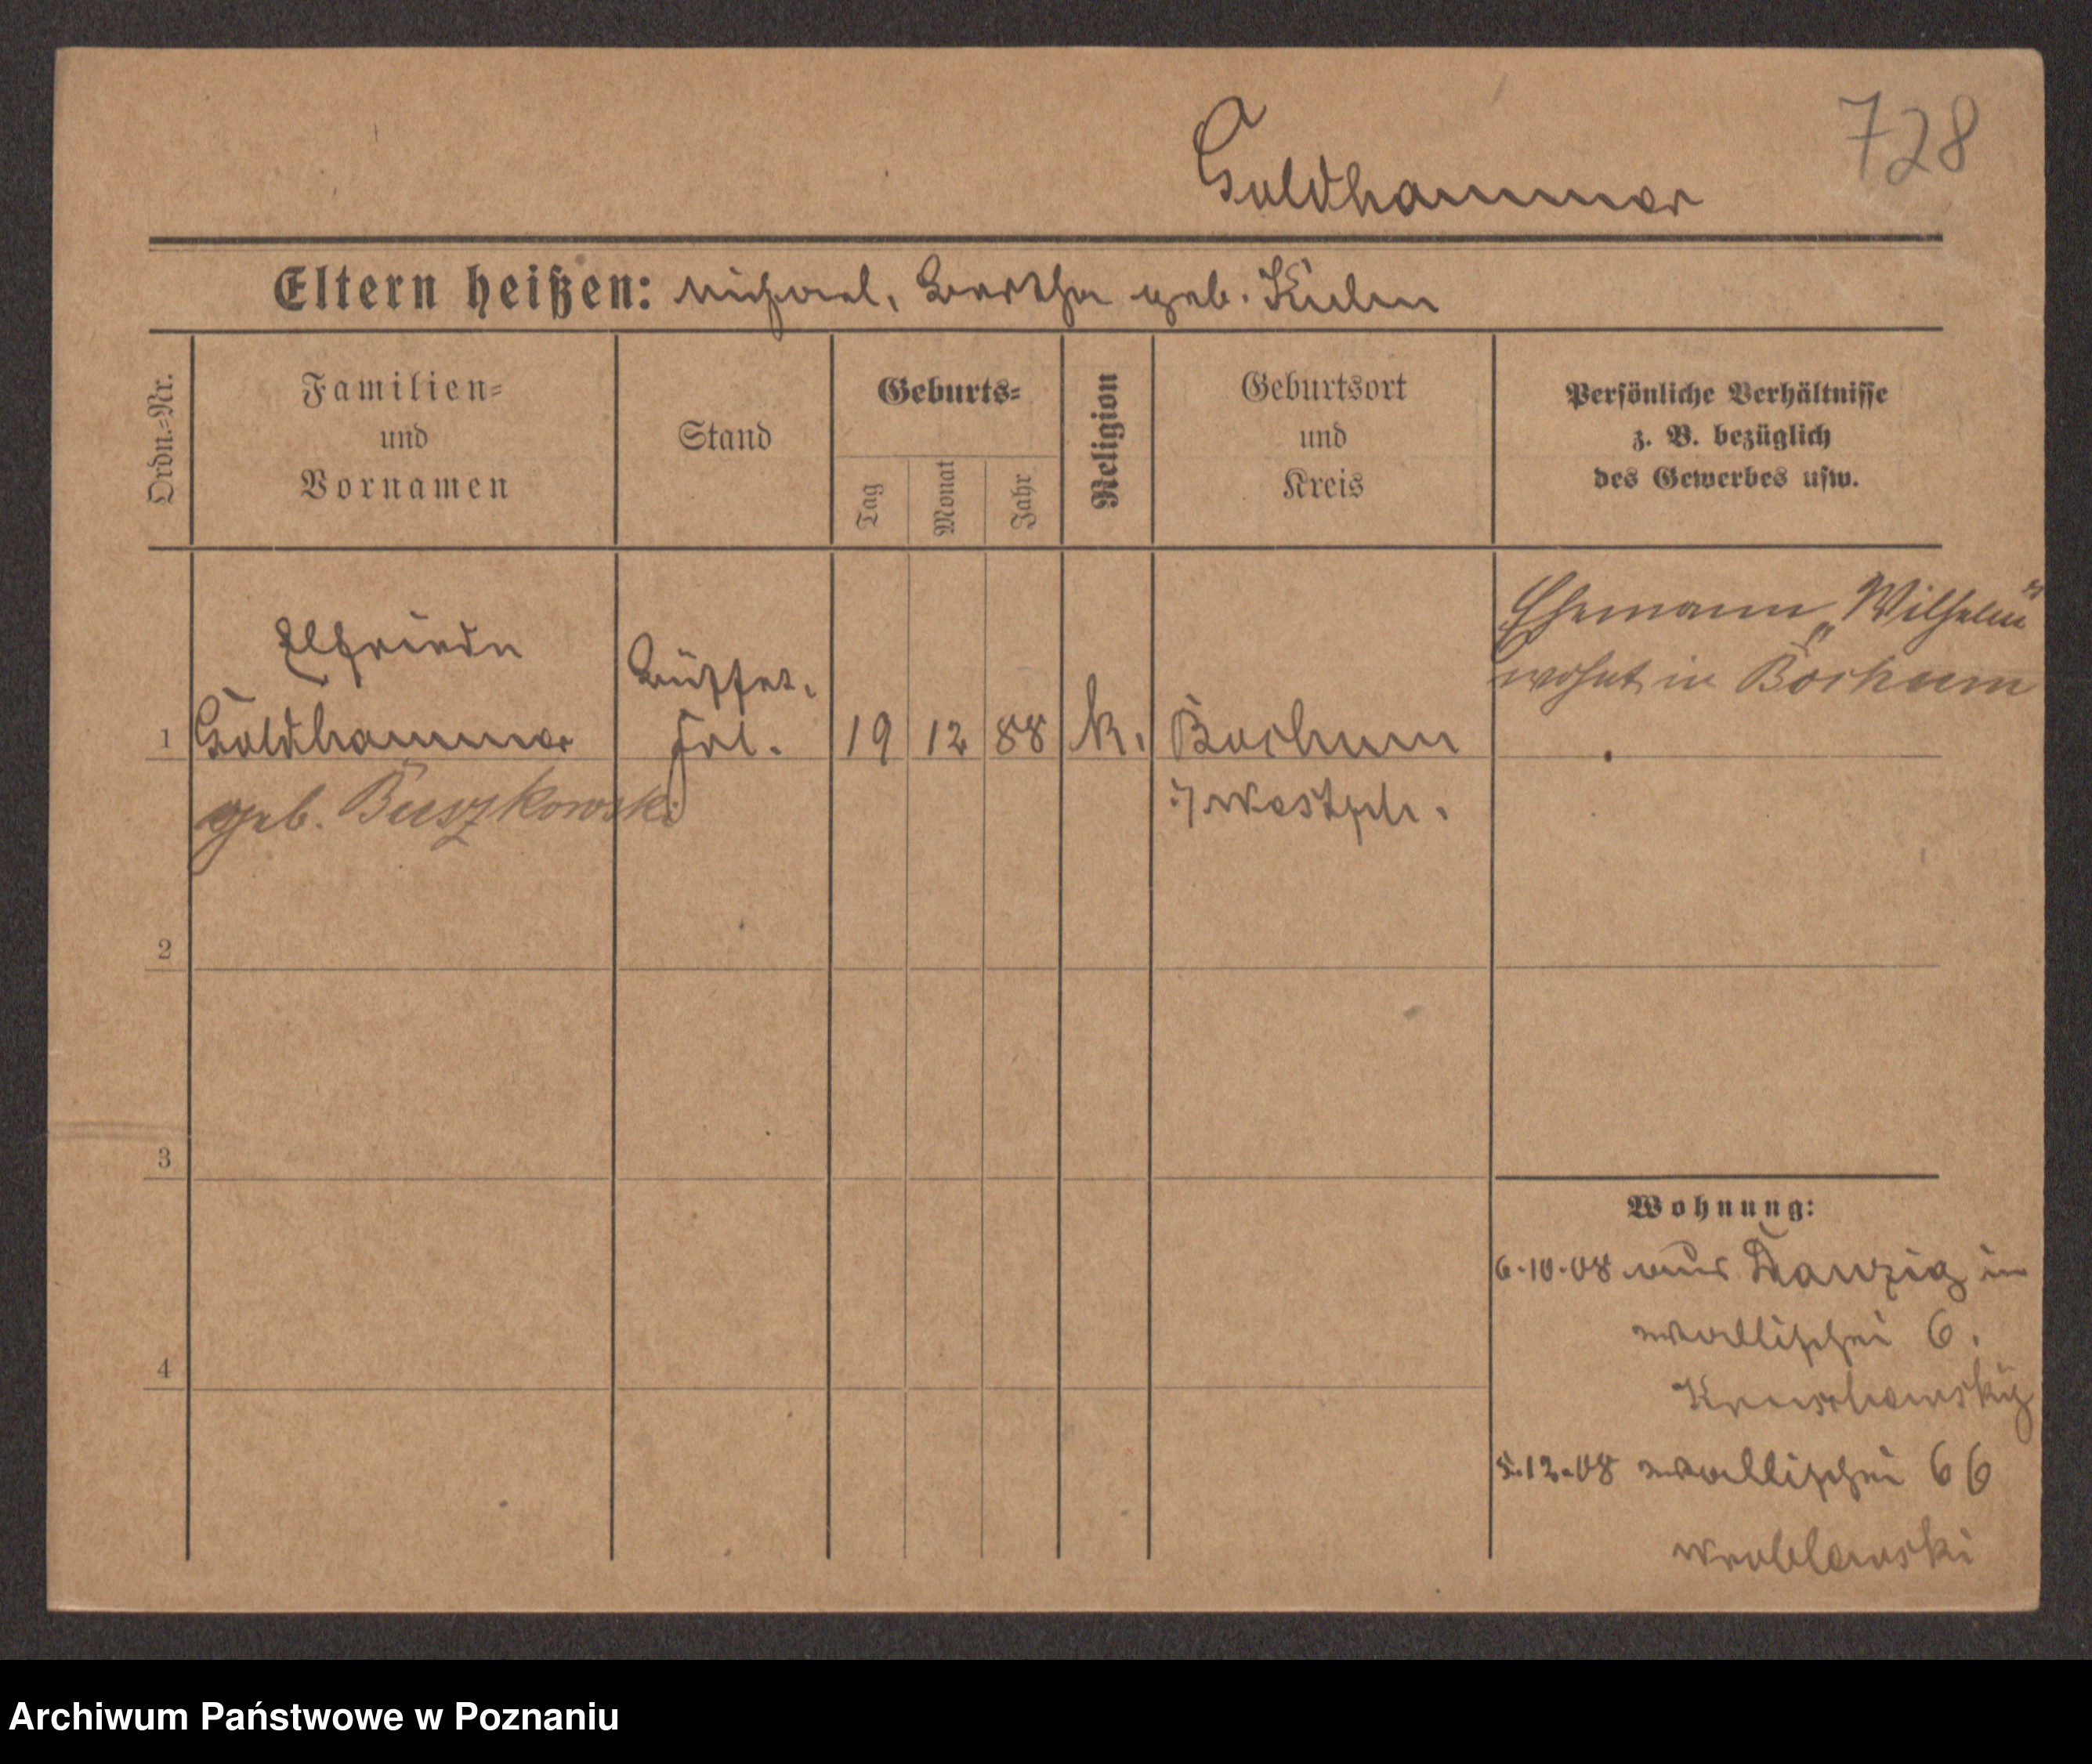 728
Goldhammer
Eltern heißen: Michael, Bertha geb. Kuhn
Ordn.=Nr.
Familien=
und
Vornamen
Stand
Geburts=
Tag
Monat
Jahr
Religion
Geburtsort
und
Kreis
Persönliche Verhältnisse
z. B. bezüglich
des Gewerbes usw.
Ehemann „Wilhelm"
wohnt in Bochum
1
Elfriede
Goldhammer
geb. Buszkowski
Büffet.
Frl.
19
12
88
k.
Bochum
i/Westph.
2
3
4
Wohnung:
6.10.08 aus Danzig in
Wallischei 6.
5.12.08 Wallischei 66
Wroblewski
Archiwum Państwowe w Poznaniu